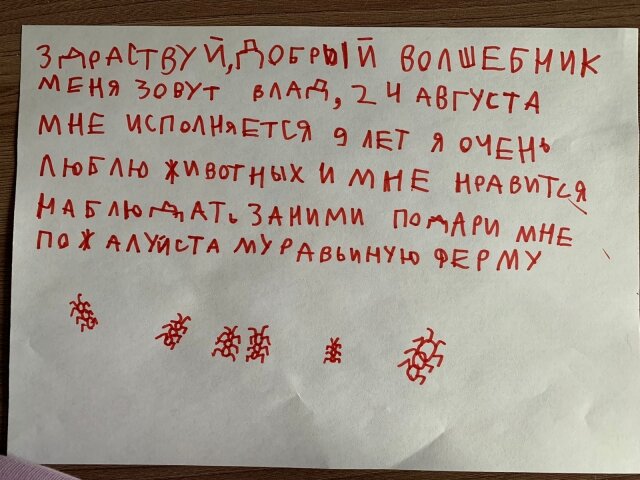 ЗДРАСТВУЙ, ДОБРЫЙ ВОЛШЕБНИК
МЕНЯ ЗОВУТ ВЛАД, 24 АВГУСТА
МНЕ ИСПОЛНЯЕТСЯ 9 ЛЕТ Я ОЧЕНЬ
ЛЮБЛЮ ЖИВОТНЫХ И МНЕ НРАВИТСЯ
НАБЛЮДАТЬ ЗАНИМИ ПОДАРИ МНЕ
ПОЖАЛУЙСТА МУРАВЬИНУЮ ФЕРМУ